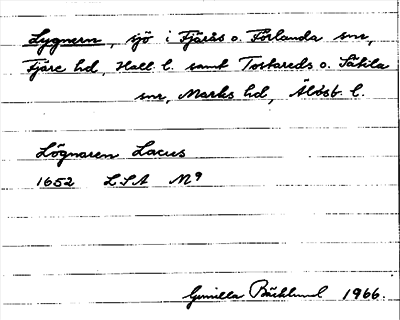 Lygnern, sjö i Fjärås o. Förlanda snr,
Fjäre hd, Hall. l. samt Tostareds o. Sätila
snr, Marks hd, Älvsb l.
Lögnaren Lacus
1652 LSA M9
Gunilla Bäcklund 1966.